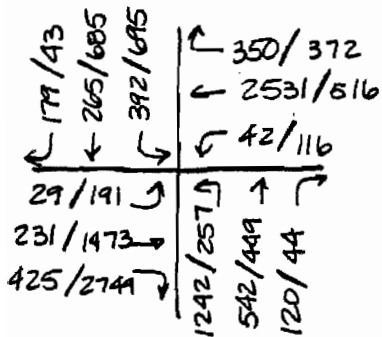 179/43
265/685
392/695
350/372
2531/516
42/116
29/191
231/1473
425/2744
1242/257
542/449
120/44